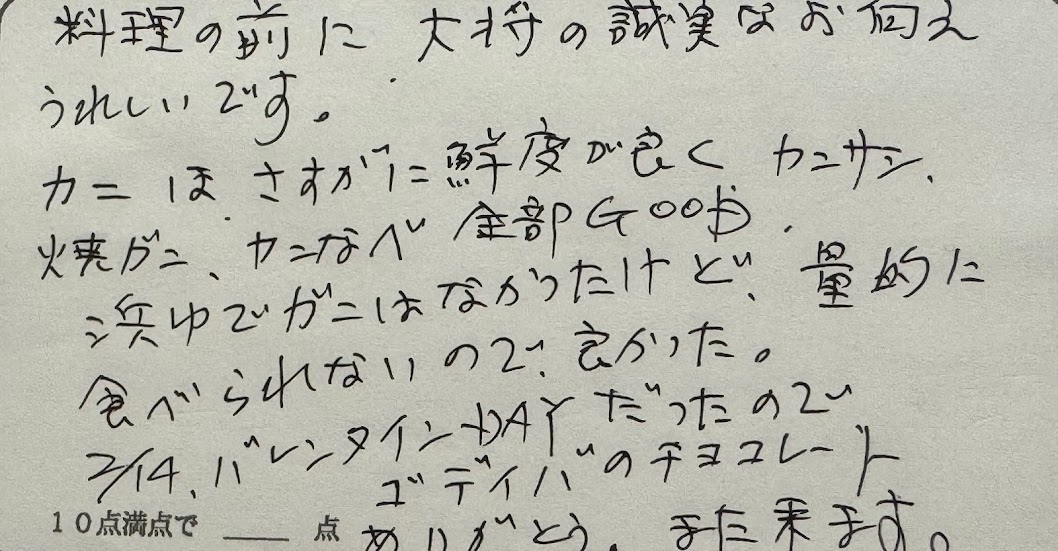 料理の前に 大将の誠実なお伺え
うれしいです。
カニはさすがに鮮度が良く カニサシ、
焼ガニ、カニなべ 全部GOOD.
浜ゆでガニはなかったけど、量的に
食べられないので、良かった。
2/14、バレンタインDAYだったので
ゴディバのチョコレート
10点満点で ____ 点 ありがとう、また来ます。